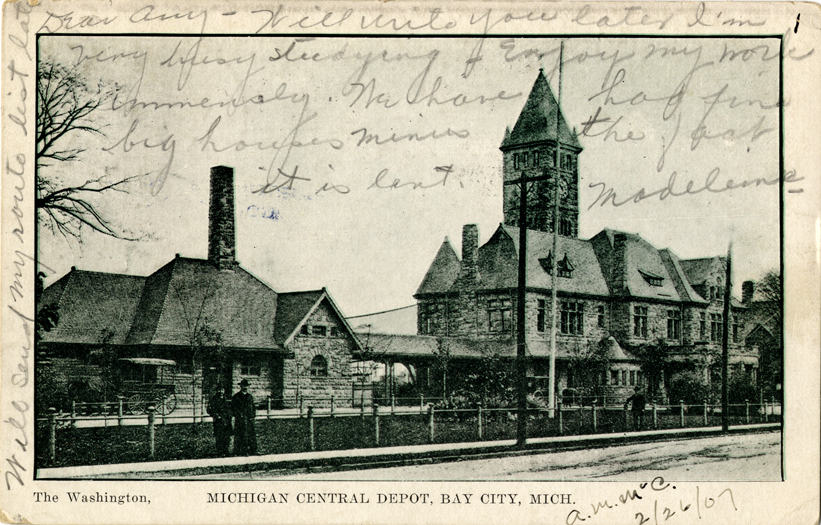 Dear Amy - Will write you later I'm
very busy studying & Enjoy my work
immensely. We have had fine
big houses minus the fact
it is lent. Madeleine
Will send my route list later
The Washington, MICHIGAN CENTRAL DEPOT, BAY CITY, MICH.
a. m. Mc.
2/26/07
1